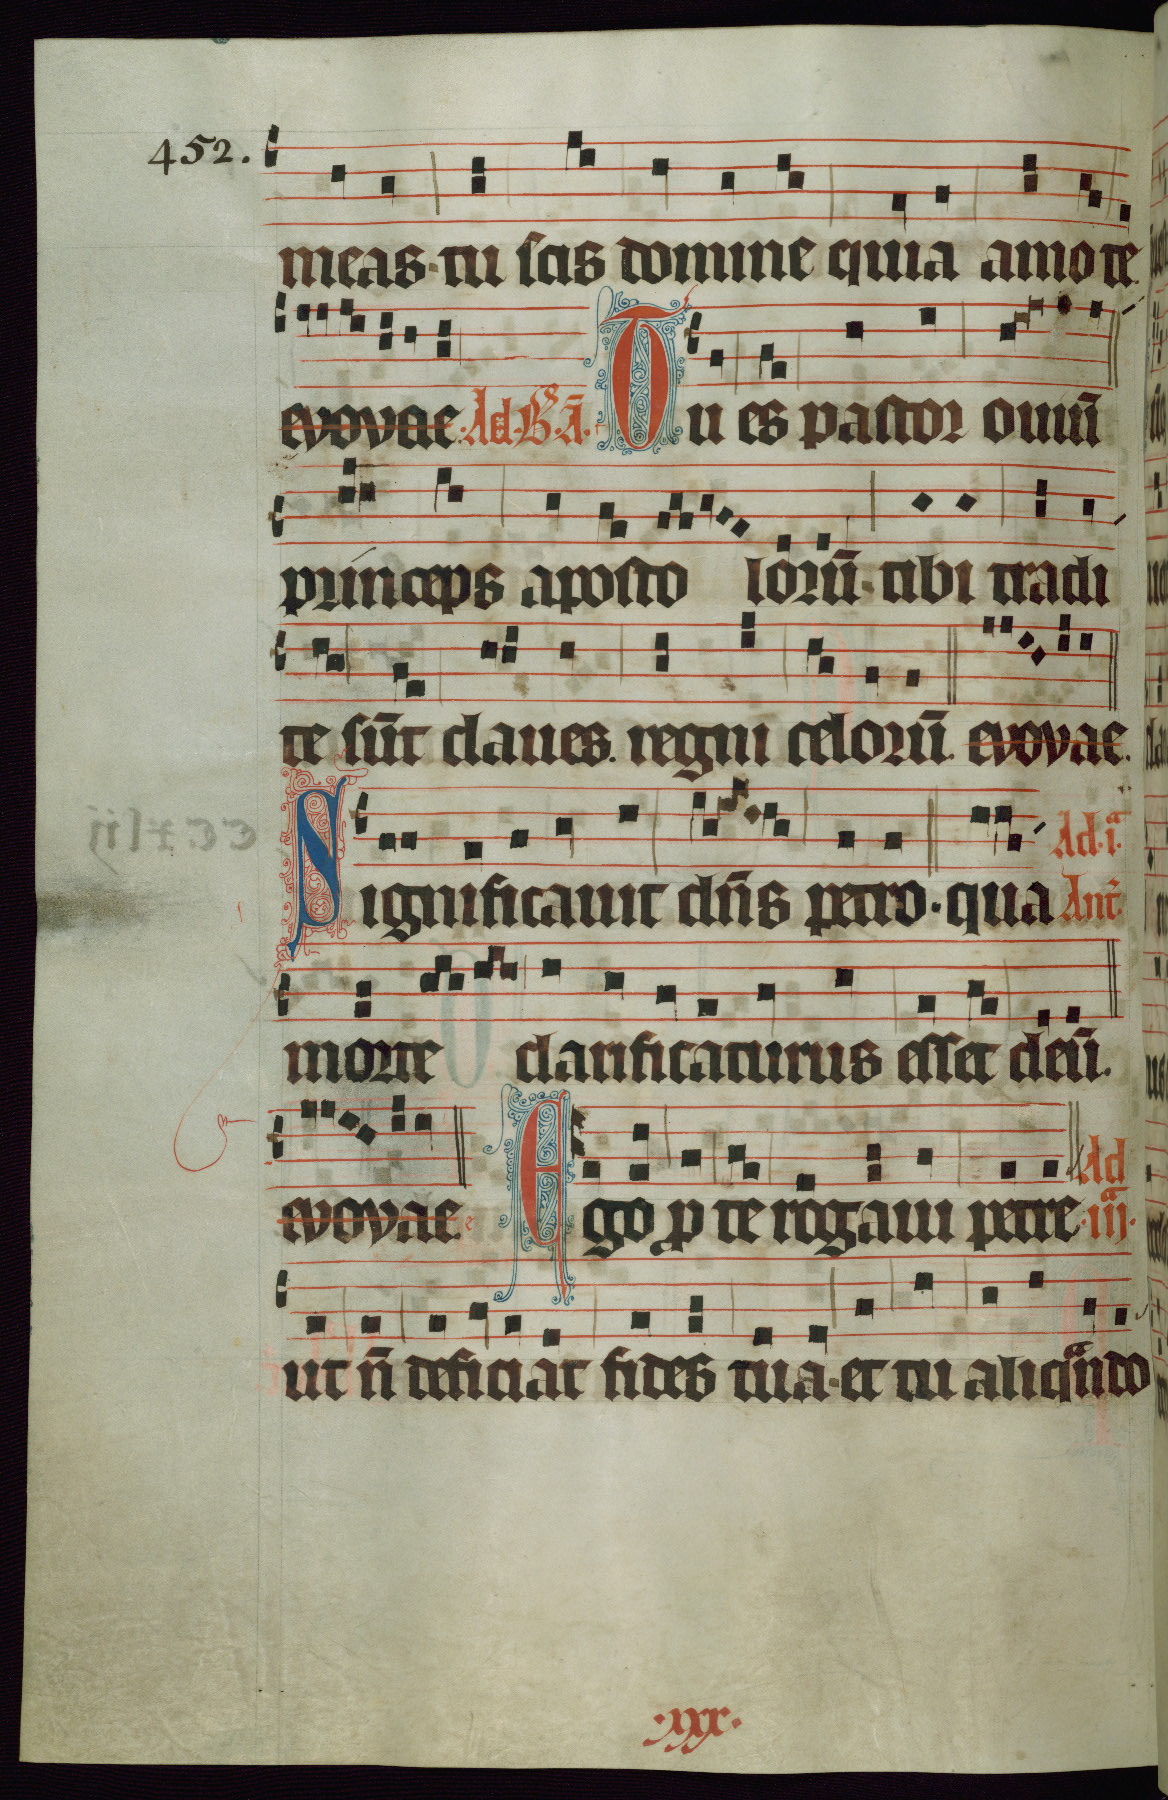 452.
meas. tu scis domine quia amo te
evovae. Ad. B. A. Tu es pastor oviū
princeps aposto lorū. tibi tradi
te sūt claues. regni celorū. evovae.
Significauit dn̄s petro. qua Ad. i.ᵃ Ant̄.
morte clarificaturus esset deū.
evovae Ego p te rogaui petre Ad iij.ᵃ
ut n̄ deficiat fides tua. et tu aliqᵃndo
.xxx.